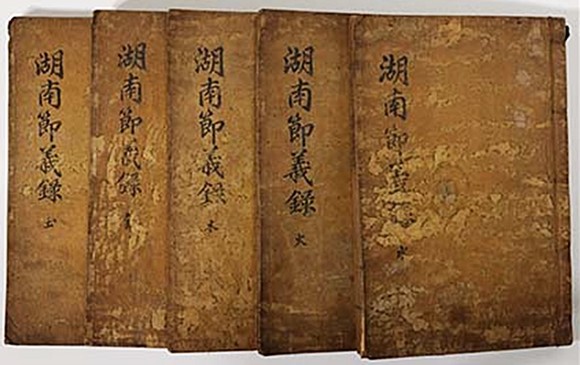 湖南節
水
湖南節義錄
火
湖南節義錄
木
湖南節義錄
湖南節義錄
土